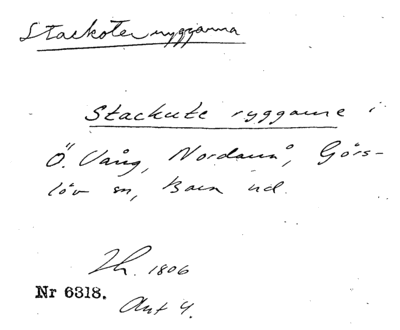 Stackote ryggarna
Stackute ryggarne i
Ö. Vång, Nordanå, Görs-
löv sn, Bara hd.
Lh. 1806
Nr 6318.
Akt 4.